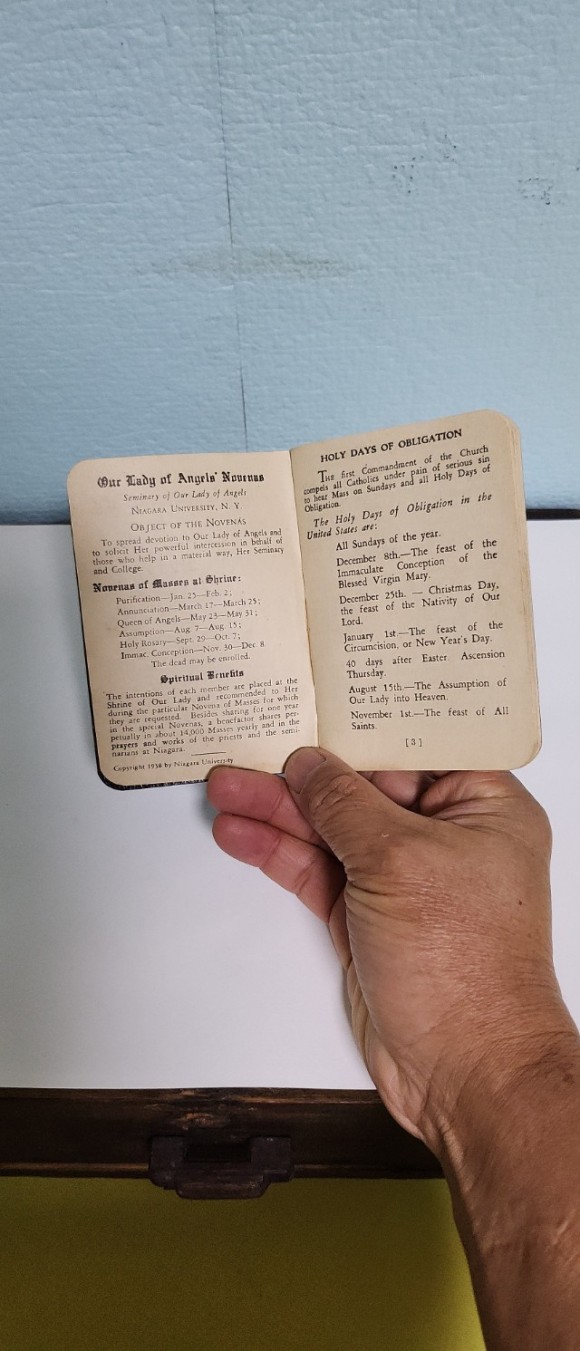 Our Lady of Angels' Novenas
Seminary of Our Lady of Angels
NIAGARA UNIVERSITY, N. Y.
OBJECT OF THE NOVENAS
To spread devotion to Our Lady of Angels and
to solicit Her powerful intercession in behalf of
those who help in a material way, Her Seminary
and College.
Novenas of Masses at Shrine:
Purification—Jan. 25—Feb. 2;
Annunciation—March 17—March 25;
Queen of Angels—May 23—May 31;
Assumption—Aug. 7—Aug. 15;
Holy Rosary—Sept. 29—Oct. 7;
Immac. Conception—Nov. 30—Dec. 8.
The dead may be enrolled.
Spiritual Benefits
The intentions of each member are placed at the
Shrine of Our Lady and recommended to Her
during the particular Novena of Masses for which
they are requested. Besides sharing for one year
in the special Novenas, a benefactor shares per-
petually in about 14,000 Masses yearly and in the
prayers and works of the priests and the semi-
narians at Niagara.
Copyright 1938 by Niagara University
HOLY DAYS OF OBLIGATION
The first Commandment of the Church
compels all Catholics under pain of serious sin
to hear Mass on Sundays and all Holy Days of
Obligation.
The Holy Days of Obligation in the
United States are:
All Sundays of the year.
December 8th.—The feast of the
Immaculate Conception of the
Blessed Virgin Mary.
December 25th. — Christmas Day,
the feast of the Nativity of Our
Lord.
January 1st.—The feast of the
Circumcision, or New Year's Day.
40 days after Easter. Ascension
Thursday.
August 15th.—The Assumption of
Our Lady into Heaven.
November 1st.—The feast of All
Saints.
[ 3 ]